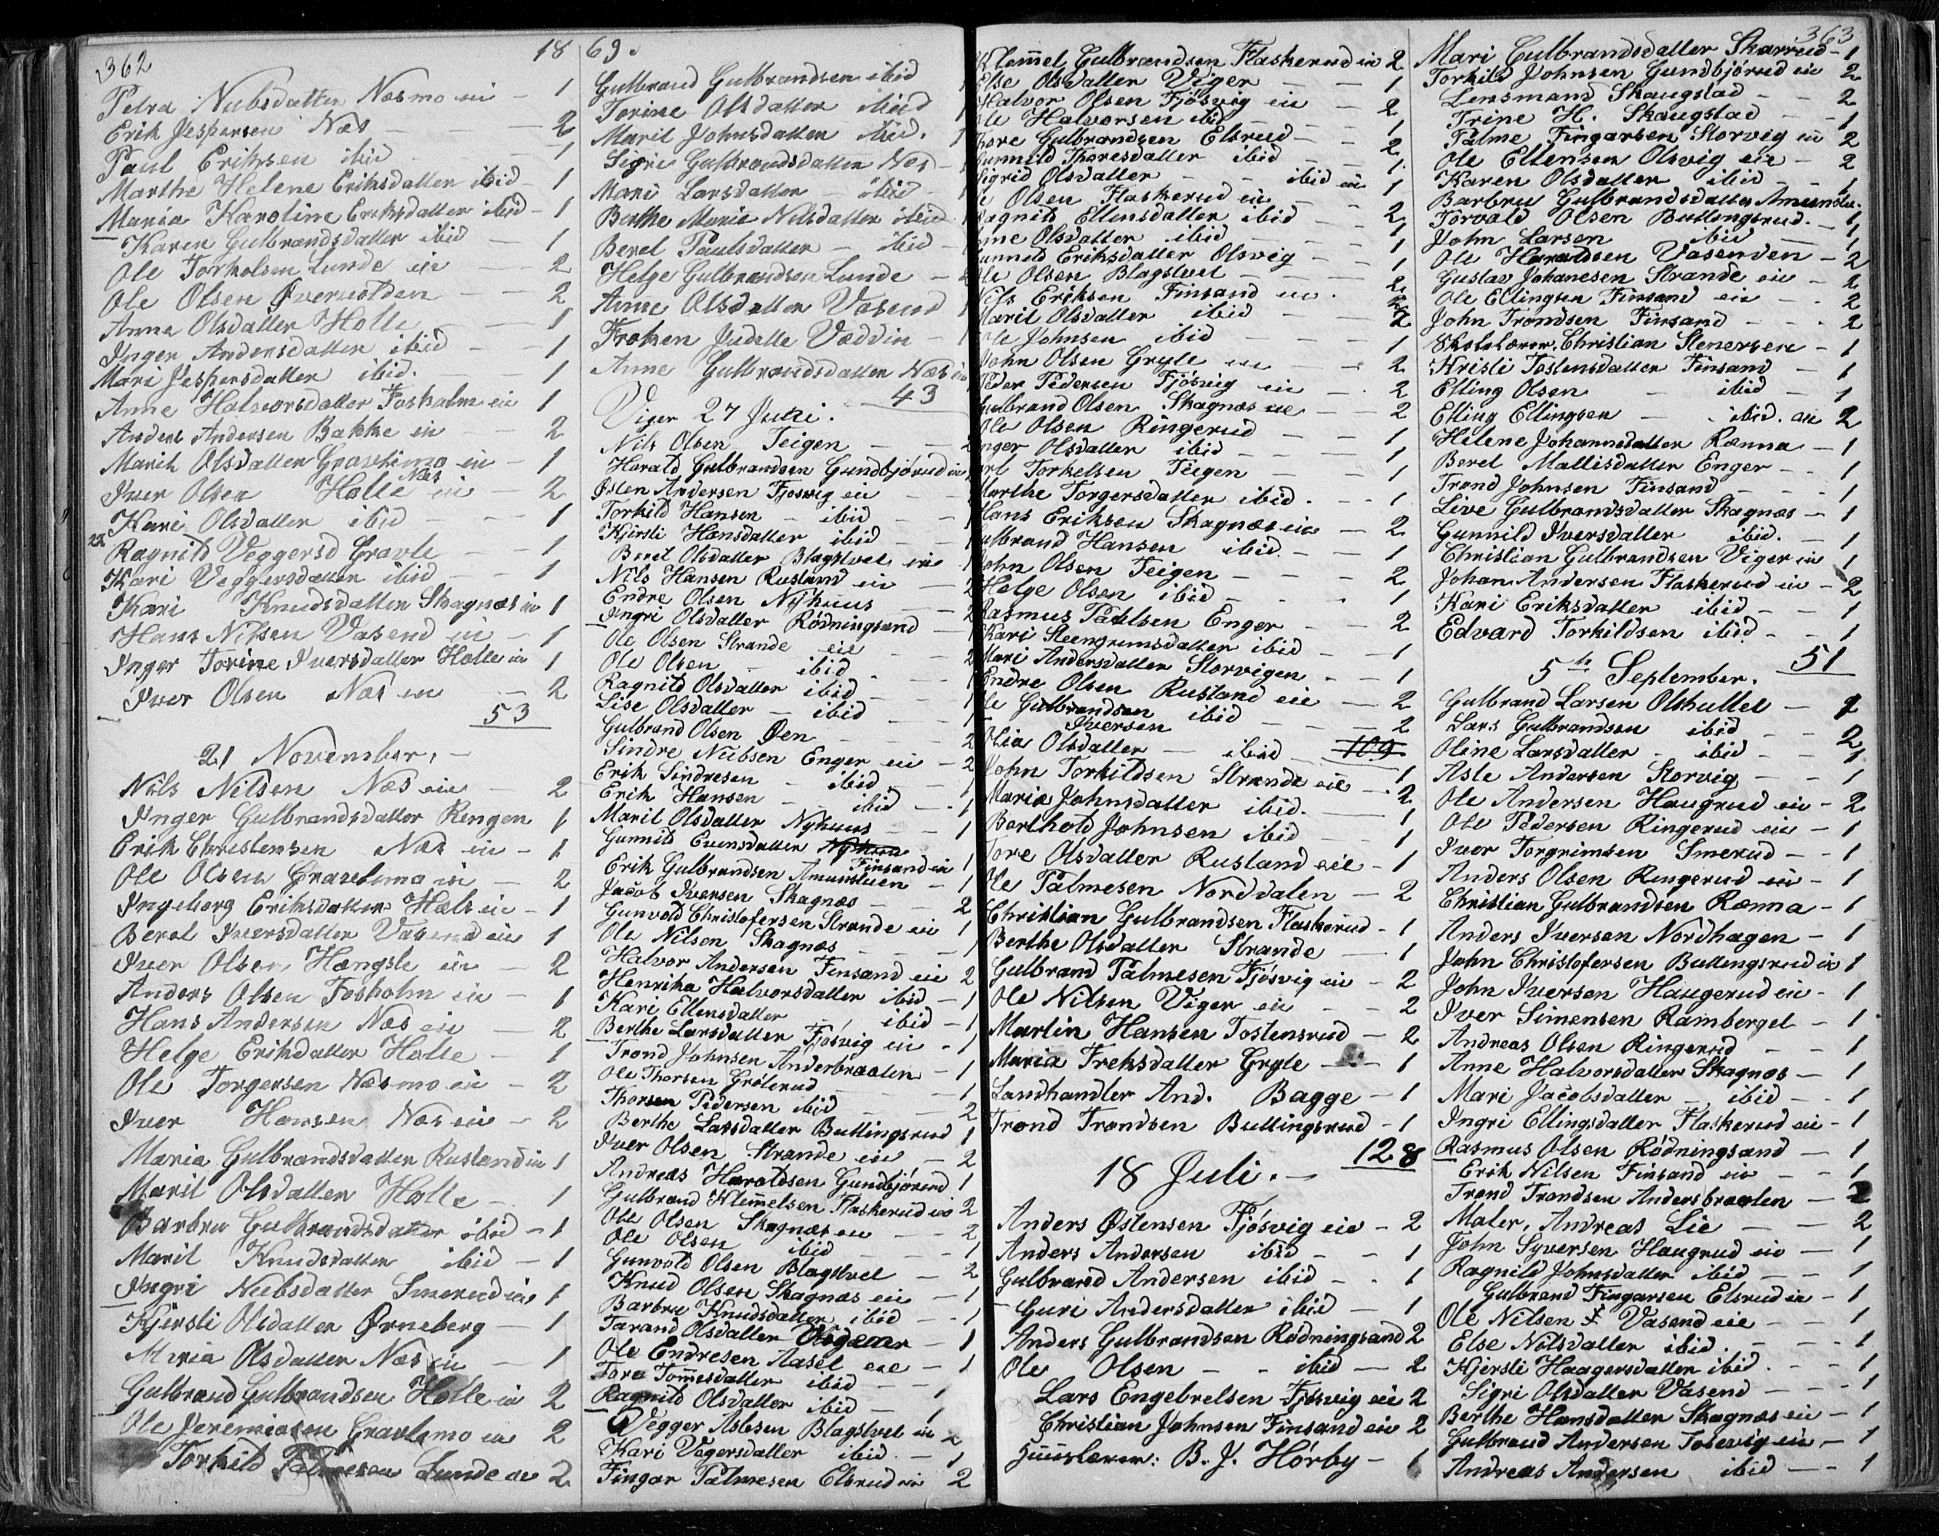 362
18 69.
Petra Nubsdatter Næsmo eie — 1
Erik Jespersen Næs — 2
Paul Eriksen ibid — 1
Marthe Helene Eriksdatter ibid — 1
Maria Karoline Eriksdatter ibid — 1
Karen Gulbrandsdatter ibid — 1
Ole Torkelsen Lunde eie — 2
Ole Olsen — 2
Anne Olsdatter Holte — 1
Inger Andersdatter ibid — 1
Mari Jespersdatter ibid. — 1
Anne Halvorsdatter Fosholm eie 1
Anders Andersen Bakke eie — 2
Marit Olsdatter eie — 1
Næs
Iver Olsen Holte eie — 2
Kari Olsdatter ibid — 1
Ragnild Veggersd Gravle — 1
Kari Veggersdatter ibid — 1
Kari Knudsdatter Skagnæs eie 1
Hans Nilsen Vasend eie — 1
Inger Torine Iversdatter Holte eie 1
Iver Olsen Næs eie — 2
53
21 November. —
Nils Nilsen Næs eie — 2
Inger Gulbrandsdatter Ringen 1
Erik Christensen Næs eie — 1
Ole Olsen Gravlimo eie — 2
Ingeborg Eriksdatter Hals eie — 1
Berel Iversdatter Vasend eie 1
Iver Olsen Hængsle eie — 2
Anders Olsen Fosholm eie — 1
Hans Andersen Næs eie — 2
Helge Eriksdatter Holte — 1
Ole Torgersen Næsmo eie — 2
Iver Hansen Næs eie — 2
Maria Gulbrandsdatter Rustand eie 1
Marit Olsdatter Holte — 1
Barbru Gulbrandsdatter ibid — 1
Marit Knudsdatter ibid — 1
Ingri Nubsdatter Smerud eie 1
Kjersti Olsdatter Ørneberg — 1
Maria Olsdatter Næs eie — 1
Gulbrand Gulbrandsen Holte eie 2
Ole Jeremiasen Gravlimo eie 2
Torkild Palmesen Lunde eie 2
Gulbrand Gulbrandsen ibid 1
Torine Olsdatter ibid 1
Marit Johnsdatter ibid. 1
Sigri Gulbrandsdatter Næs — 1
Mari Larsdatter — ibid —
Berthe Marie Nilsdatter ibid
Berel Paulsdatter — ibid —
Helge Gulbrandsen Lunde —
Anne Olsdatter Vasend 1
Frøken Judille Væddin — 1
Anne Gulbrandsdatter Næs eie
43
Viger 27 Juni.
Nils Olsen Teigen — 2
Harald Gulbrandsen Gundbjørud eie
Østen Andersen Fjøsvig eie
Torkild Hansen — ibid —
Kjersti Hansdatter ibid —
Berel Olsdatter Blagstvet eie
Nils Hansen Rustand eie —
Endre Olsen Nyhuus —
Ingri Olsdatter Rødningsand —
Ole Olsen Strande eie
Ole Olsen — ibid. —
Ragnild Olsdatter ibid —
Lise Olsdatter — ibid —
Gulbrand Olsen Øen —
Sindre Nubsen Enger eie — 2
Erik Sindresen — ibid — 1
Erik Hansen — ibid — 1
Marit Olsdatter Nyhuus — 1
Gunnild Evensdatter Finsand eie 1
Erik Gulbrandsen Amunslien — 1
Jacob Iversen Skagnæs — 2
Gunvold Christofersen Strande eie 1
Ole Nilsen Skagnæs — 1
Halvor Andersen Finsand eie 2
Henrika Halvorsdatter ibid — 1
Kari Ellensdatter — ibid — 1
Berthe Larsdatter Fjøsvig eie — 1
Trond Johnsen Anderbraaten — 1
Ole Thorsen Grølerud — 1
Thorsen Pedersen ibid — 2
Berthe Larsdatter Bullingsrud 1
Iver Olsen Strande eie — 2
Andreas Haroldsen Gundbjørud 1
Gulbrand Klemmelsen Flaskerud eie 2
Ole Olsen Skagnæs eie — 2
Ole Olsen ibid — 1
Gunvold Olsen Blagstvet — 2
Knud Olsen Skagnæs eie — 1
Barbru Knudsdatter ibid — 1
Tarand Olsdatter Vigeier 1
Ole Endresen Aasel eie — 1
Tore Tomesdatter ibid — 1
Ragnild Olsdatter ibid — 1
Vegger Aslesen Blagstvet eie 2
Kari Vegersdatter ibid — 1
Fingar Palmesen Elsrud eie 2
363
Klemmel Gulbrandsen Flaskerud eie 2
Else Olsdatter Viger — 1
Halvor Olsen Fjøsvig eie — 2
Ole Halvorsen ibid — 1
Thore Gulbrandsen Elsrud — 2
Gunnild Thoresdatter ibid — 1
Sigrid Olsdatter — ibid eie 1
Ole Olsen Flaskerud eie —
Ragnild Ellensdatter ibid — 2
Anne Olsdatter ibid — 1
Gunnild Eriksdatter Olsvig — 1
Ole Olsen Blagstvet — 2
Nils Eriksen Finsand eie. 2
Marit Olsdatter ibid — 2
Ole Johnsen ibid — 1
John Olsen Gryte eie — 2
Peder Pedersen Fjøsvig eie — 2
Gulbrand Olsen Skagnæs eie — 2
Ole Olsen Ringerud — 1
Inger Olsdatter ibid — 1
Torkelsen Teigen — 1
Marthe Torgersdatter ibid. — 1
Hans Eriksen Skagnæs eie — 2
Gulbrand Hansen ibid. — 1
John Olsen Teigen — 2
Helge Olsen ibid — 1
Rasmus Paulsen Enger — 2
Kari Steengrimsdatter ibid — 1
Mari Andersdatter Storvigen — 1
Endre Olsen Rustand eie — 2
Ole Gulbrandsen ibid —
Iversen — 2
Olia Olsdatter — ibid 109
John Torkildsen Strande eie — 1
Maria Johnsdatter ibid. 2
Berthold Johnsen ibid 1
Tore Olsdatter Rustand eie — 1
Ole Palmesen Norddalen — 2
Christian Gulbrandsen Flaskerud — 1
Berthe Olsdatter Strande — 1
Gulbrand Palmesen Fjøsvig eie — 2
Ole Nilsen Viger eie — 2
Martin Hansen Tostensrud — 2
Maria Freksdatter Gryte — 1
Landhandler And. Bagge — 1
Trond Trondsen Bullingsrud — 1
128
18 Juli. —
Anders Østensen Fjøsvig eie — 2
Anders Andersen ibid — 1
Gulbrand Andersen ibid — 1
Guri Andersdatter ibid — 1
Anders Gulbrandsen Rødningsand 2
Ole Olsen — ibid — 2
Lars Engebretsen Fjøsvig eie 2
Christian Johnsen Finsand eie 2
Huuslærer: B. J. Hørby — 1
Mari Gulbrandsdatter Skarrud — 1
Torkild Johnsen Gundbjørud eie 2
Lensmand Skaugstad — 2
Trine H. Skaugstad — 1
Palme Fingarsen Storvig eie 2
Ole Ellensen Olsvig eie — 2
Karen Olsdatter ibid — 1
Barbru Gulbrandsdatter Amundsl.
Torvald Olsen Bullingsrud. — 1
John Larsen ibid — 1
Ole Haroldsen Vasenden — 2
Gustav Johanesen Strande eie — 2
Ole Ellingsen Finsand eie 2
John Trondsen Finsand — 2
Skolelærer. Christian Stenersen — 1
Kristi Tostensdatter Finsand — 1
Elling Olsen — ibid — 1
Elling Ellingsen — ibid. eie 2
Helene Johannsdatter Rænna — 1
Berel Mattisdatter Enger — 1
Trond Johnsen Finsand — 1
Live Gulbrandsdatter Skagnæs — 1
Gunnild Iversdatter ibid. — 1
Christian Gulbrandsen Viger eie 1
Johan Andersen Flaskerud eie — 2
Kari Eriksdatter ibid — 1
Edvard Torkildsen ibid — 1
51
5te September.
Gulbrand Larsen Olshullet — 2
Lars Gulbrandsen ibid — 2
Oline Larsdatter — ibid — 1
Asle Andersen Storvig — 1
Ole Andersen Haugrud eie — 2
Ole Pedersen Ringerud eie — 1
Iver Torgrimsen Smerud — 1
Anders Olsen Ringerud eie — 1
Christian Gulbrandsen Rænna — 1
Anders Iversen Nordhagen — 1
John Christofersen Bullingsrud eie 1
John Iversen Haugerud eie — 1
Iver Simensen Ramberget — 1
Andreas Olsen Ringerud — 1
Anne Halvorsdatter Skagnæs — 1
Mari Jacobsdatter — ibid — 1
Ingri Ellingsdatter Flaskerud eie — 1
Rasmus Olsen Rødningsand — 1
Erik Nilsen Finsand eie — 1
Trond Trondsen Andersbraaten — 2
Maler, Andreas Lie — 2
John Syversen Haugrud eie — 1
Ragnild Johnsdatter ibid — 1
Gulbrand Fingarsen Elsrud eie — 1
Ole Nilsen Vasend eie — 1
Else Nilsdatter ibid. — 1
Kjersti Haagensdatter ibid. — 1
Sigri Olsdatter Vasend — 1
Berthe Hansdatter Skagnæs eie — 1
Gulbrand Andersen eie — 1
Andreas Andersen ibid — 1